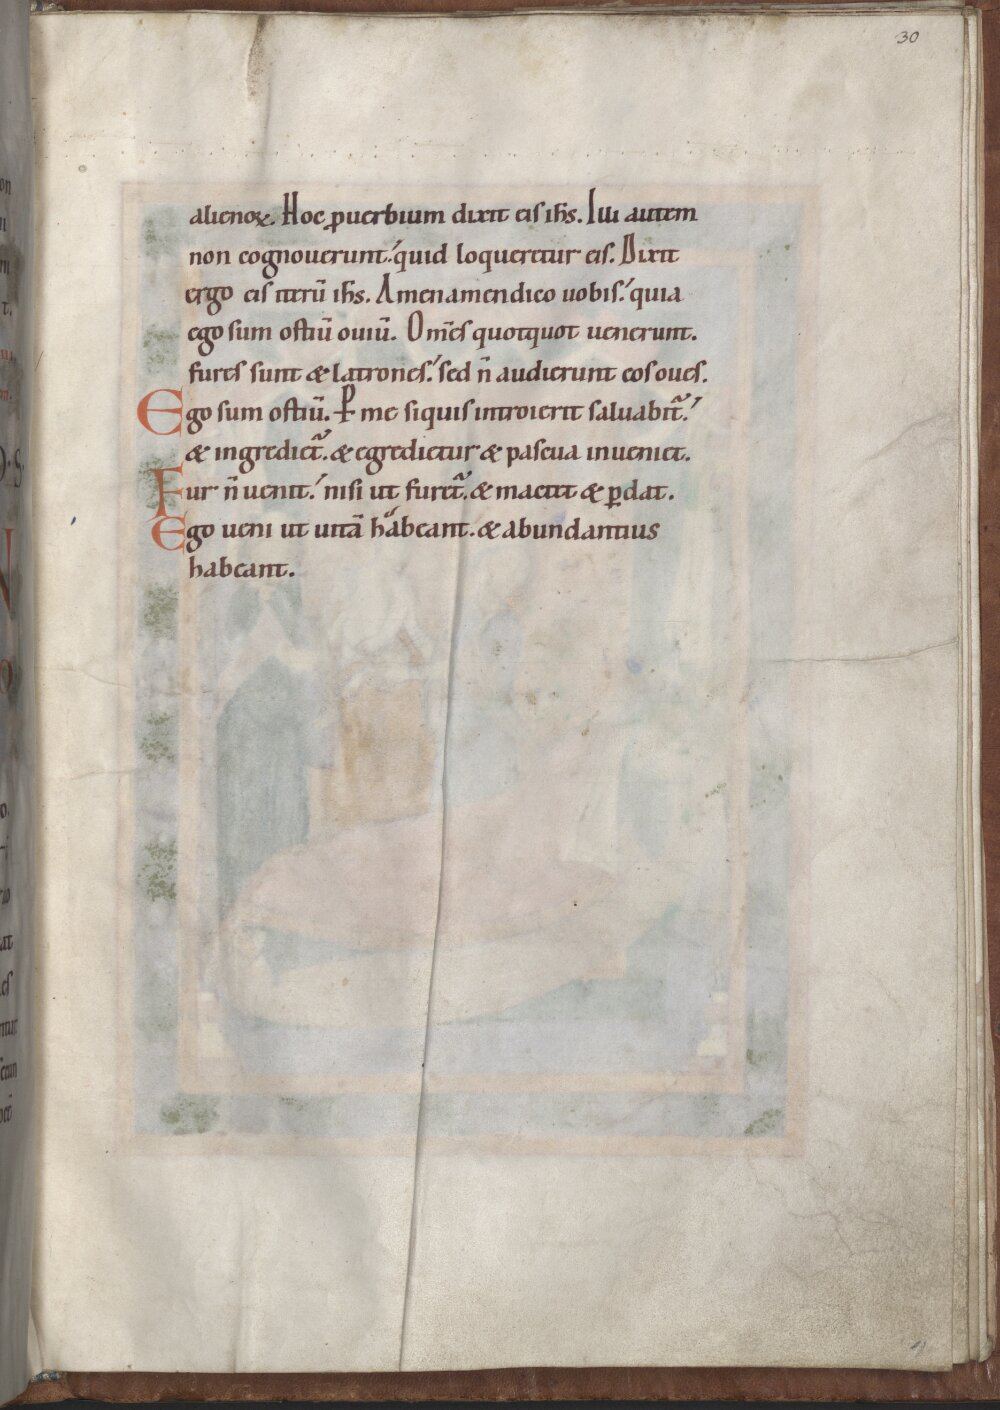 30
alienoꝝ. Hoc ꝓuerbium dixit eis ih̄s. Illi autem
non cognouerunt. quid loqueretur eis. Dixit
ergo eis iterū ih̄s. Amen amen dico uobis. quia
ego sum ostiū ouiū. Om̄es quotquot uenerunt.
fures sunt & latrones. sed n̄ audierunt eos oues.
Ego sum ostiū. P̱ me siquis introierit saluabit̄.
& ingrediet̄. & egredietur & pascua inueniet.
Fur n̄ uenit. nisi ut furet̄. & mactet & ꝑdat.
Ego ueni ut uitā habeant. & abundantius
habeant.